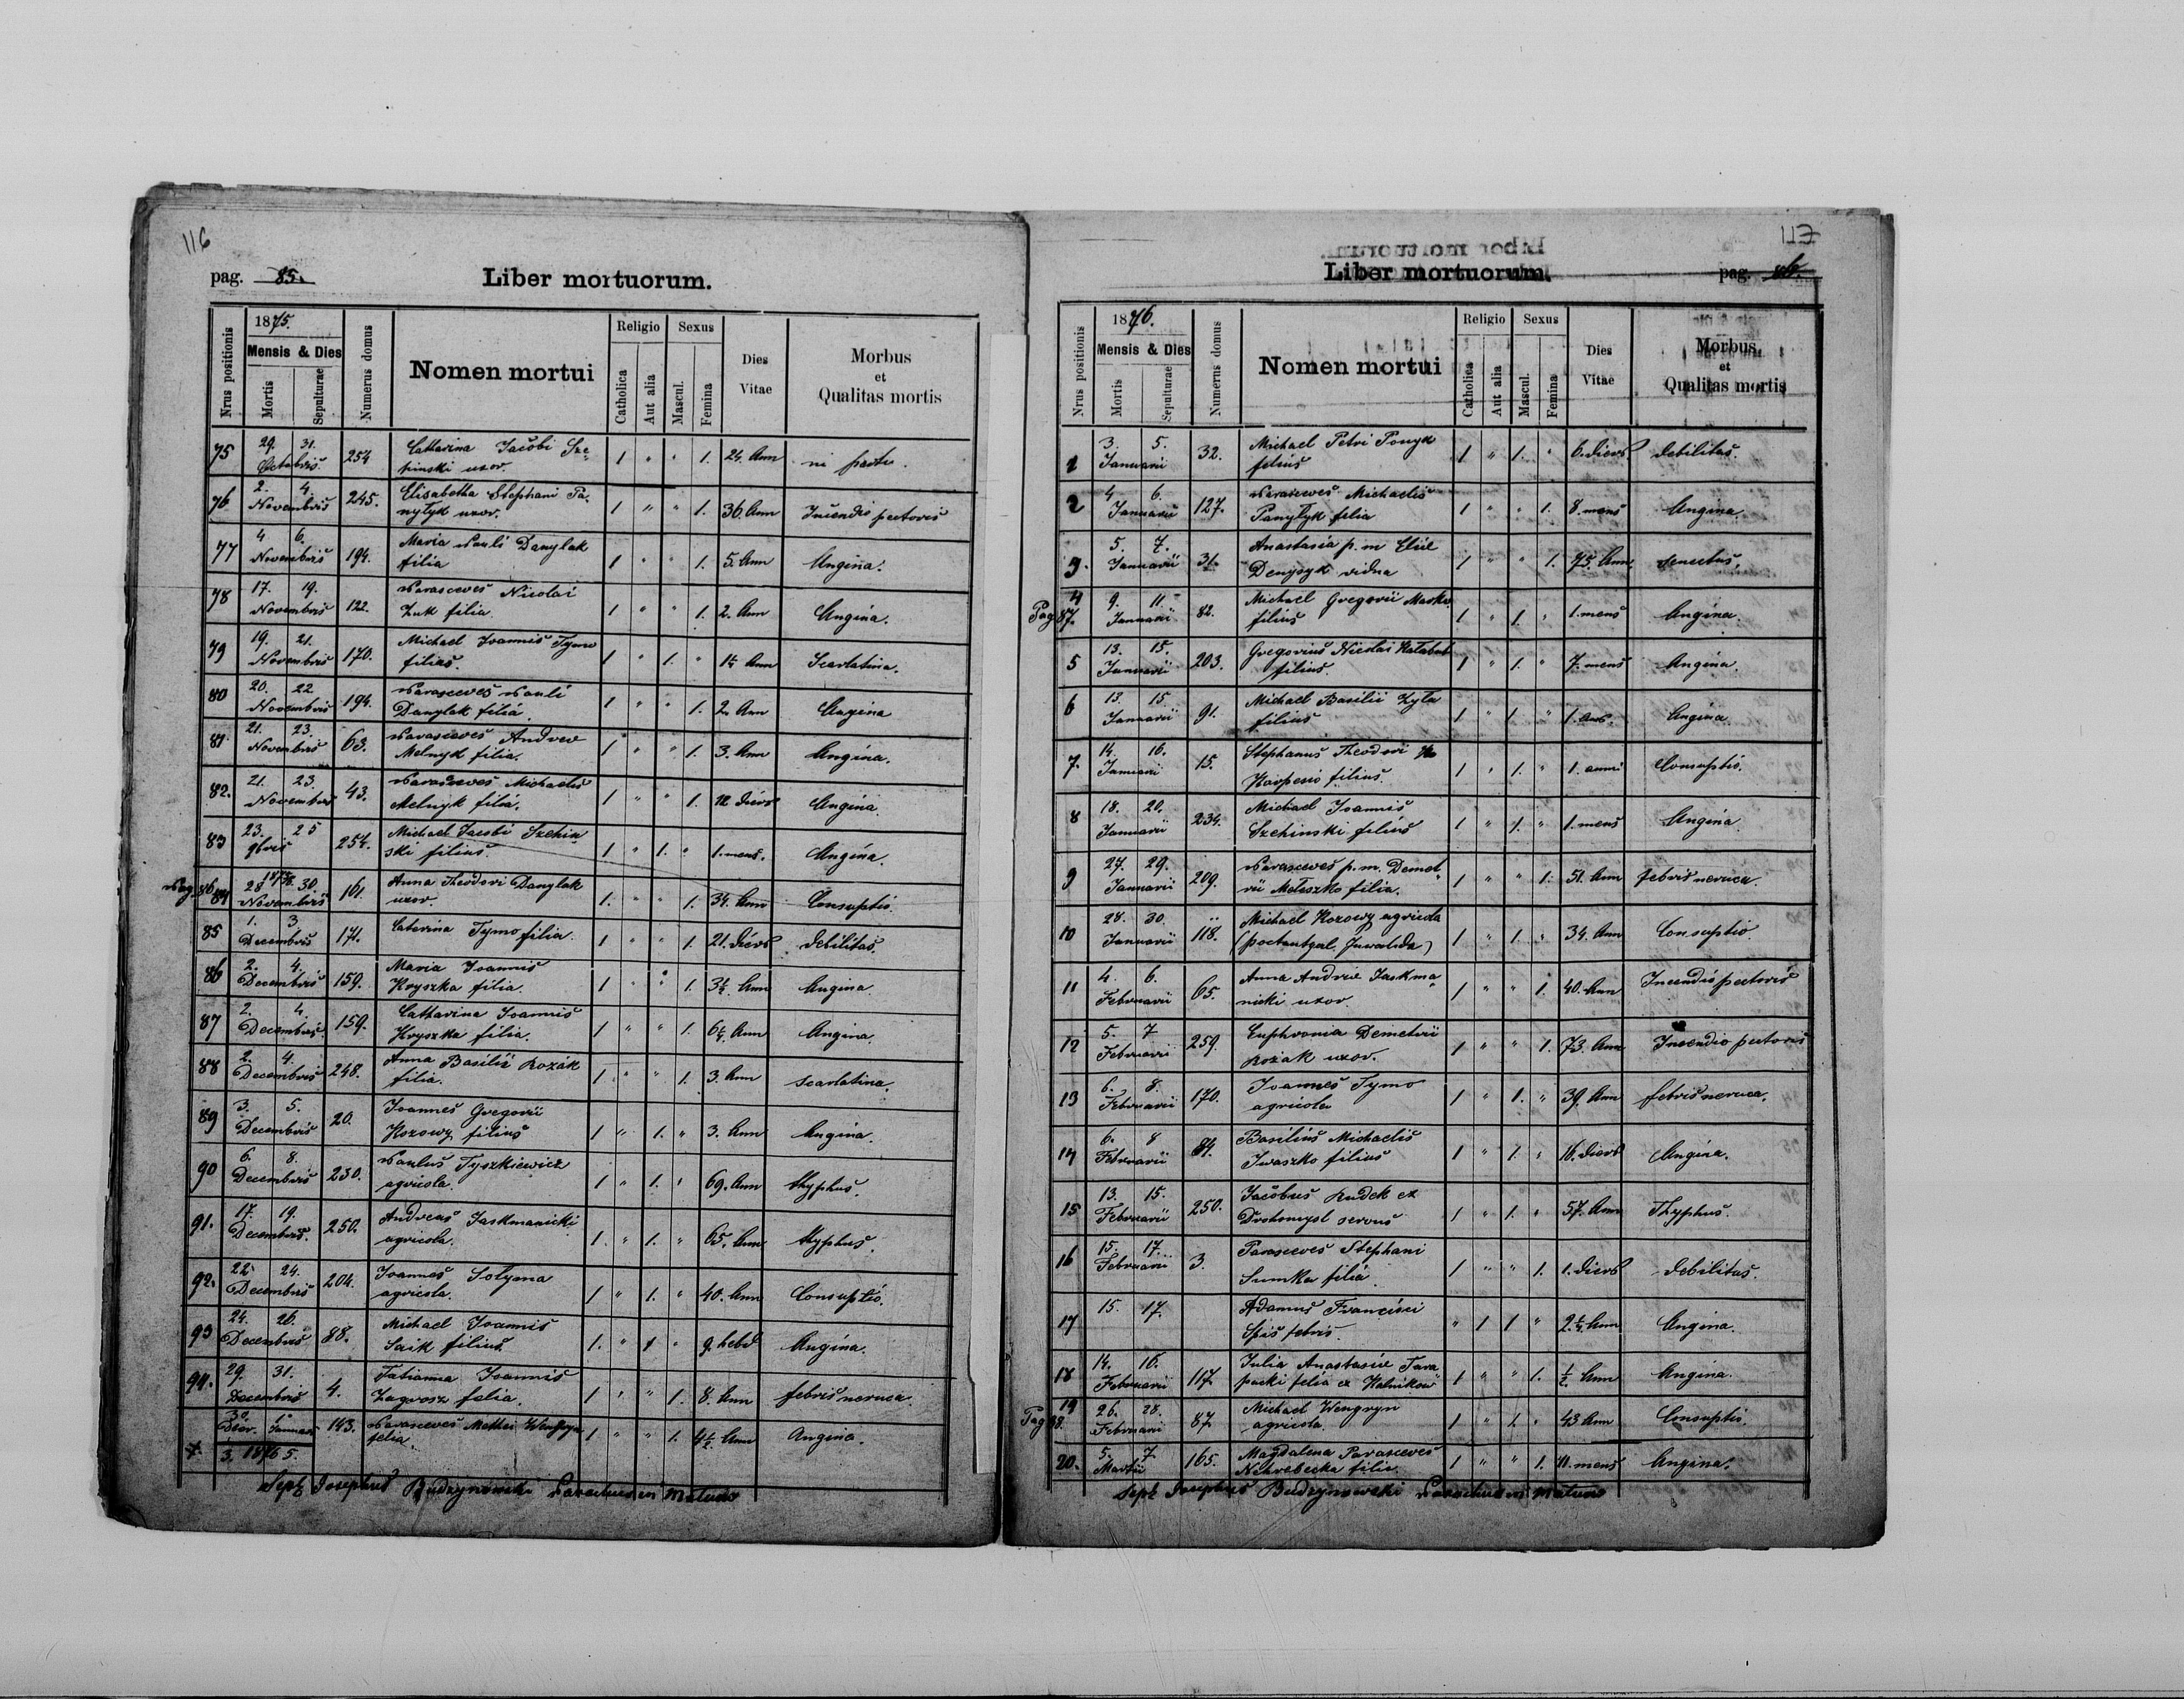 116
pag. 85.
Liber mortuorum.
Nrus positionis
1875.
Mensis & Dies
Mortis
Sepulturae
Numerus domus
Nomen mortui
Religio
Catholica
Aut alia
Sexus
Mascul.
Femina
Dies Vitae
Morbus et Qualitas mortis
75 29. 31. Octobris 254 Catharina Jacobi Sze
pinski uxor. 1 " " 1. 24. Ann partu.
76 2. 4. Novembris 245. Elisabetha Stephani Pa
nylyk uxor. 1 " " 1. 36. Ann Incendio pectoris
77 4 6. Novembris 194. Maria Pauli Danylak
filia 1 " " 1. 5. Ann Angina.
78 17. 19. Novembris 122. Parasceves Nicolai
Zuk filia. 1 " " 1. 2. Ann Angina.
79 19. 21. Novembris 170. Michael Joannis Tymo
filius. 1 " 1. " Ann Scarlatina.
80 20. 22 Novembris 194. Parasceves Pauli
Danylak filia. 1 " " 1. 2. Ann Angina
81 21. 23. Novembris 63. Parasceves Andreae
Melnyk filia. 1 " " 1. 3. Ann Angina.
82. 21. 23. Novembris 43. Parasceves Michaelis
Melnyk filia. 1 " " 1. 12 dies Angina.
83 23. 25 9bris 254. Michael Jacobi Szehin
ski filius. 1 " 1. " 1. mens. Angina.
Pag. 86
84 28 1875. 30. Novembris 161. Anna Theodori Danylak
uxor. 1. " " 1. 34. Ann Consuptio.
85 1. 3 Decembris 171. Caterina Tymo filia. 1 " " 1. 21. dies debilitas.
86 2. 4. Decembris 159. Maria Joannis
Hryszka filia. 1 " " 1. 3½. Ann Angina
87 2. 4. Decembris 159. Catharina Joannis
Hryszka filia. 1 " " 1. Ann Angina.
88 2. 4. Decembris 248. Anna Basilii Kozak
filia. 1 " " 1. 3. Ann scarlatina.
89 3. 5. Decembris 20. Joannes Gregorii
Kozowy filius 1 " 1. " 3. Ann Angina.
90 6. 8. Decembris 230. Paulus Tyszkiewicz
agricola. 1 " 1. " 69. Ann thyphus.
91. 17. 19. Decembris. 250. Andreas Jaskmanicki
agricola. 1. " 1. " 65. Ann thyphus.
92. 22. 24. Decembris 204. Joannes Solyma
agricola. 1 " 1. " 40. Ann Consuptio.
93 24. 26. Decembris 88. Michael Joannis
Saik filius. 1. " 1 " 9. hebd Angina.
94. 29. 31. Decembris 4. Tatianna Joannis
Zagrosz felia. 1 " " 1. 8. Ann febris nervea.
30. Januar 143. Parasceves Mathei
felia. 1 " " 1. 4½. Ann Angina.
3. 1876 5.
Josephus Budzynowski Parochus in
117
Liber mortuorum.
pag. 86.
Nrus positionis
1876.
Mensis & Dies
Mortis
Sepulturae
Numerus domus
Nomen mortui
Religio
Catholica
Aut alia
Sexus
Mascul.
Femina
Dies Vitae
Morbus et Qualitas mortis
1 3. 5. Januarii 32. Michael Petri Ponyk
felius 1 " 1. " 6. dies. debilitas.
2 4. 6. Januarii 127. Parasceves Michaelis
Panylyk filia 1 " " 1. 8. mens Angina.
3. 5. 7. Januarii 31. Anastasia p. m Eliae
Denysyk vidua 1 " " 1. 75. Ann. senectus.
Pag 87.
4 9. 11. Januarii 82. Michael Gregorii Masko
filius 1 " 1. " 1. mens Angina.
5 13. 15. Januarii 203. Gregorius Nicolai
filius. 1 " 1. " 7. mens Angina.
6 13. 15. Januarii 91. Michael Basilii Zyla
filius 1 " 1. " Angina.
7. 14. 16. Januarii 15. Stephanus Theodori
filius. 1 " 1. " 1. anni Consuptio.
8 18. 20. Januarii 234. Michael Joannis
Szehinski filius 1 " 1. " 1. mens Angina.
9 27. 29. Januarii 209. Parasceves p. m. Demet
rii Meleszko filia. 1 " " 1. 51. Ann febris nervea.
10 28. 30. Januarii 118. Michael Kozowy agricola
1 " 1. " 34. Ann Consuptio
11 4. 6. Februarii 65. Anna Andreae Jaskma
nicki uxor. 1 " " 1. 40. Ann Incendio pectoris
12 5. 7 Februarii 259. Euphronia Demetrii
Kozak uxor. 1 " " 1. 73. Ann Incendio pectoris
13 6. 8. Februarii 170. Joannes Tymo
agricola 1 " 1. " 39. Ann febris nervea.
14 6. 8 Februarii 84. Basilius Michaelis
Iwaszko filius 1 " 1. " 16. dies Angina.
15 13. 15. Februarii 250. Jacobus Rudek ex
Drohomysl servus 1 " 1. " 57. Ann Thyphus.
16 15. 17. Februarii 3. Parasceves Stephani
Sumka filia. 1 " " 1. 1. dies debilitas.
17 15. 17. Adamus Francisci
" 1 1 " Ann Angina.
18 14. 16. Februarii 117. Julia Anastasiae Tara
packi felia ex 1 " " 1. ½. Ann Angina.
Pag 88.
19 26. 28. Februarii 87. Michael Wengryn
agricola. 1 " 1. " 43 Ann Consuptio.
20. 5. 7 Martii 165. Magdalena Parasceves
Nehrebecka filia 1 " " 1. 11. mens Angina.
Josephus Budzynowski Parochus in